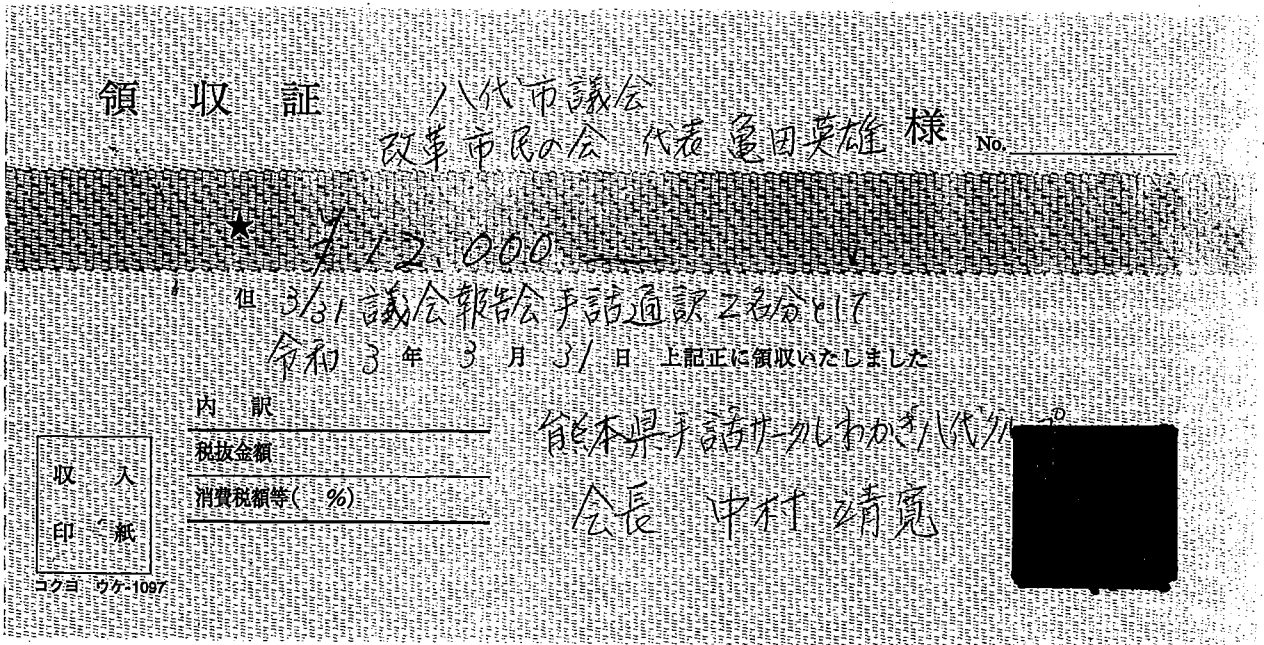 領収証 八代市議会
改革市民の会 代表 亀田英雄 様 No.
★ ¥12,000
但 3/31 議会報告会手話通訳2名分として
令和3年3月31日 上記正に領収いたしました
内訳
税抜金額
消費税額等( %)
収入
印紙
熊本県手話サークルわかぎ八代グループ
会長 中村 靖寛
コクヨ ウケ-1097